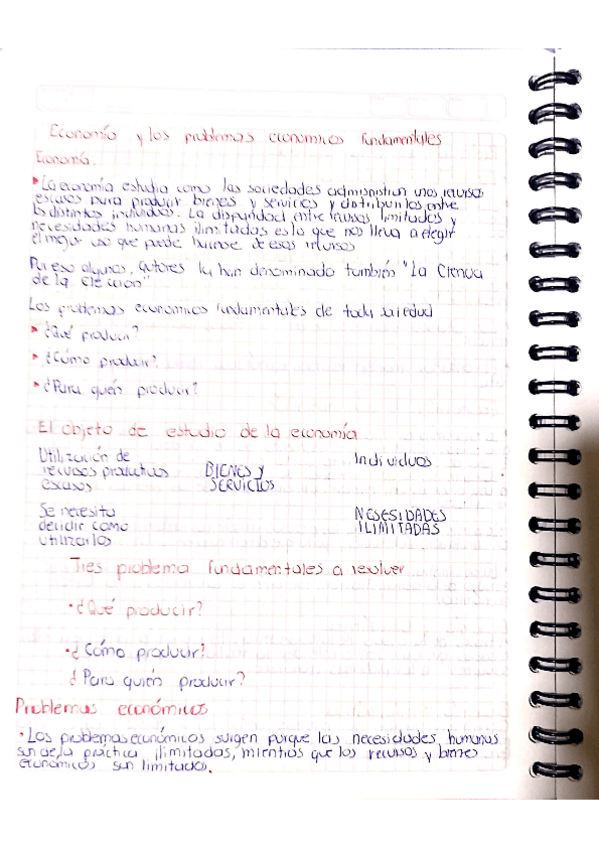 Economía y los problemas economicos fundamentales
Economía.
La economía estudia como las sociedades administran unos recursos
escasos para producir bienes y servicios y distribuirlos entre
los distintos individuos. La disparidad entre recursos limitados y
necesidades humanas ilimitadas es lo que nos lleva a elegir
el mejor uso que puede hacerse de esos recursos
Por eso algunos, autores la han denominado también "La Ciencia
de la elección"
Los problemas economicos fundamentales de toda sociedad
¿Qué producir?
¿Cómo producir?
¿Para quién producir?
El objeto de estudio de la economía
Utilización de
recursos productivos
escasos
BIENES Y
SERVICIOS
Individuos
Se necesita
decidir como
utilizarlos
NESESIDADES
ILIMITADAS
Tres problema fundamentales a resolver
• ¿Qué producir?
• ¿Cómo producir?
¿Para quién producir?
Problemas económicos
• Los problemas económicos surgen porque las necesidades humanas
son de la práctica ilimitadas, mientras que los recursos y bienes
económicos son limitados.